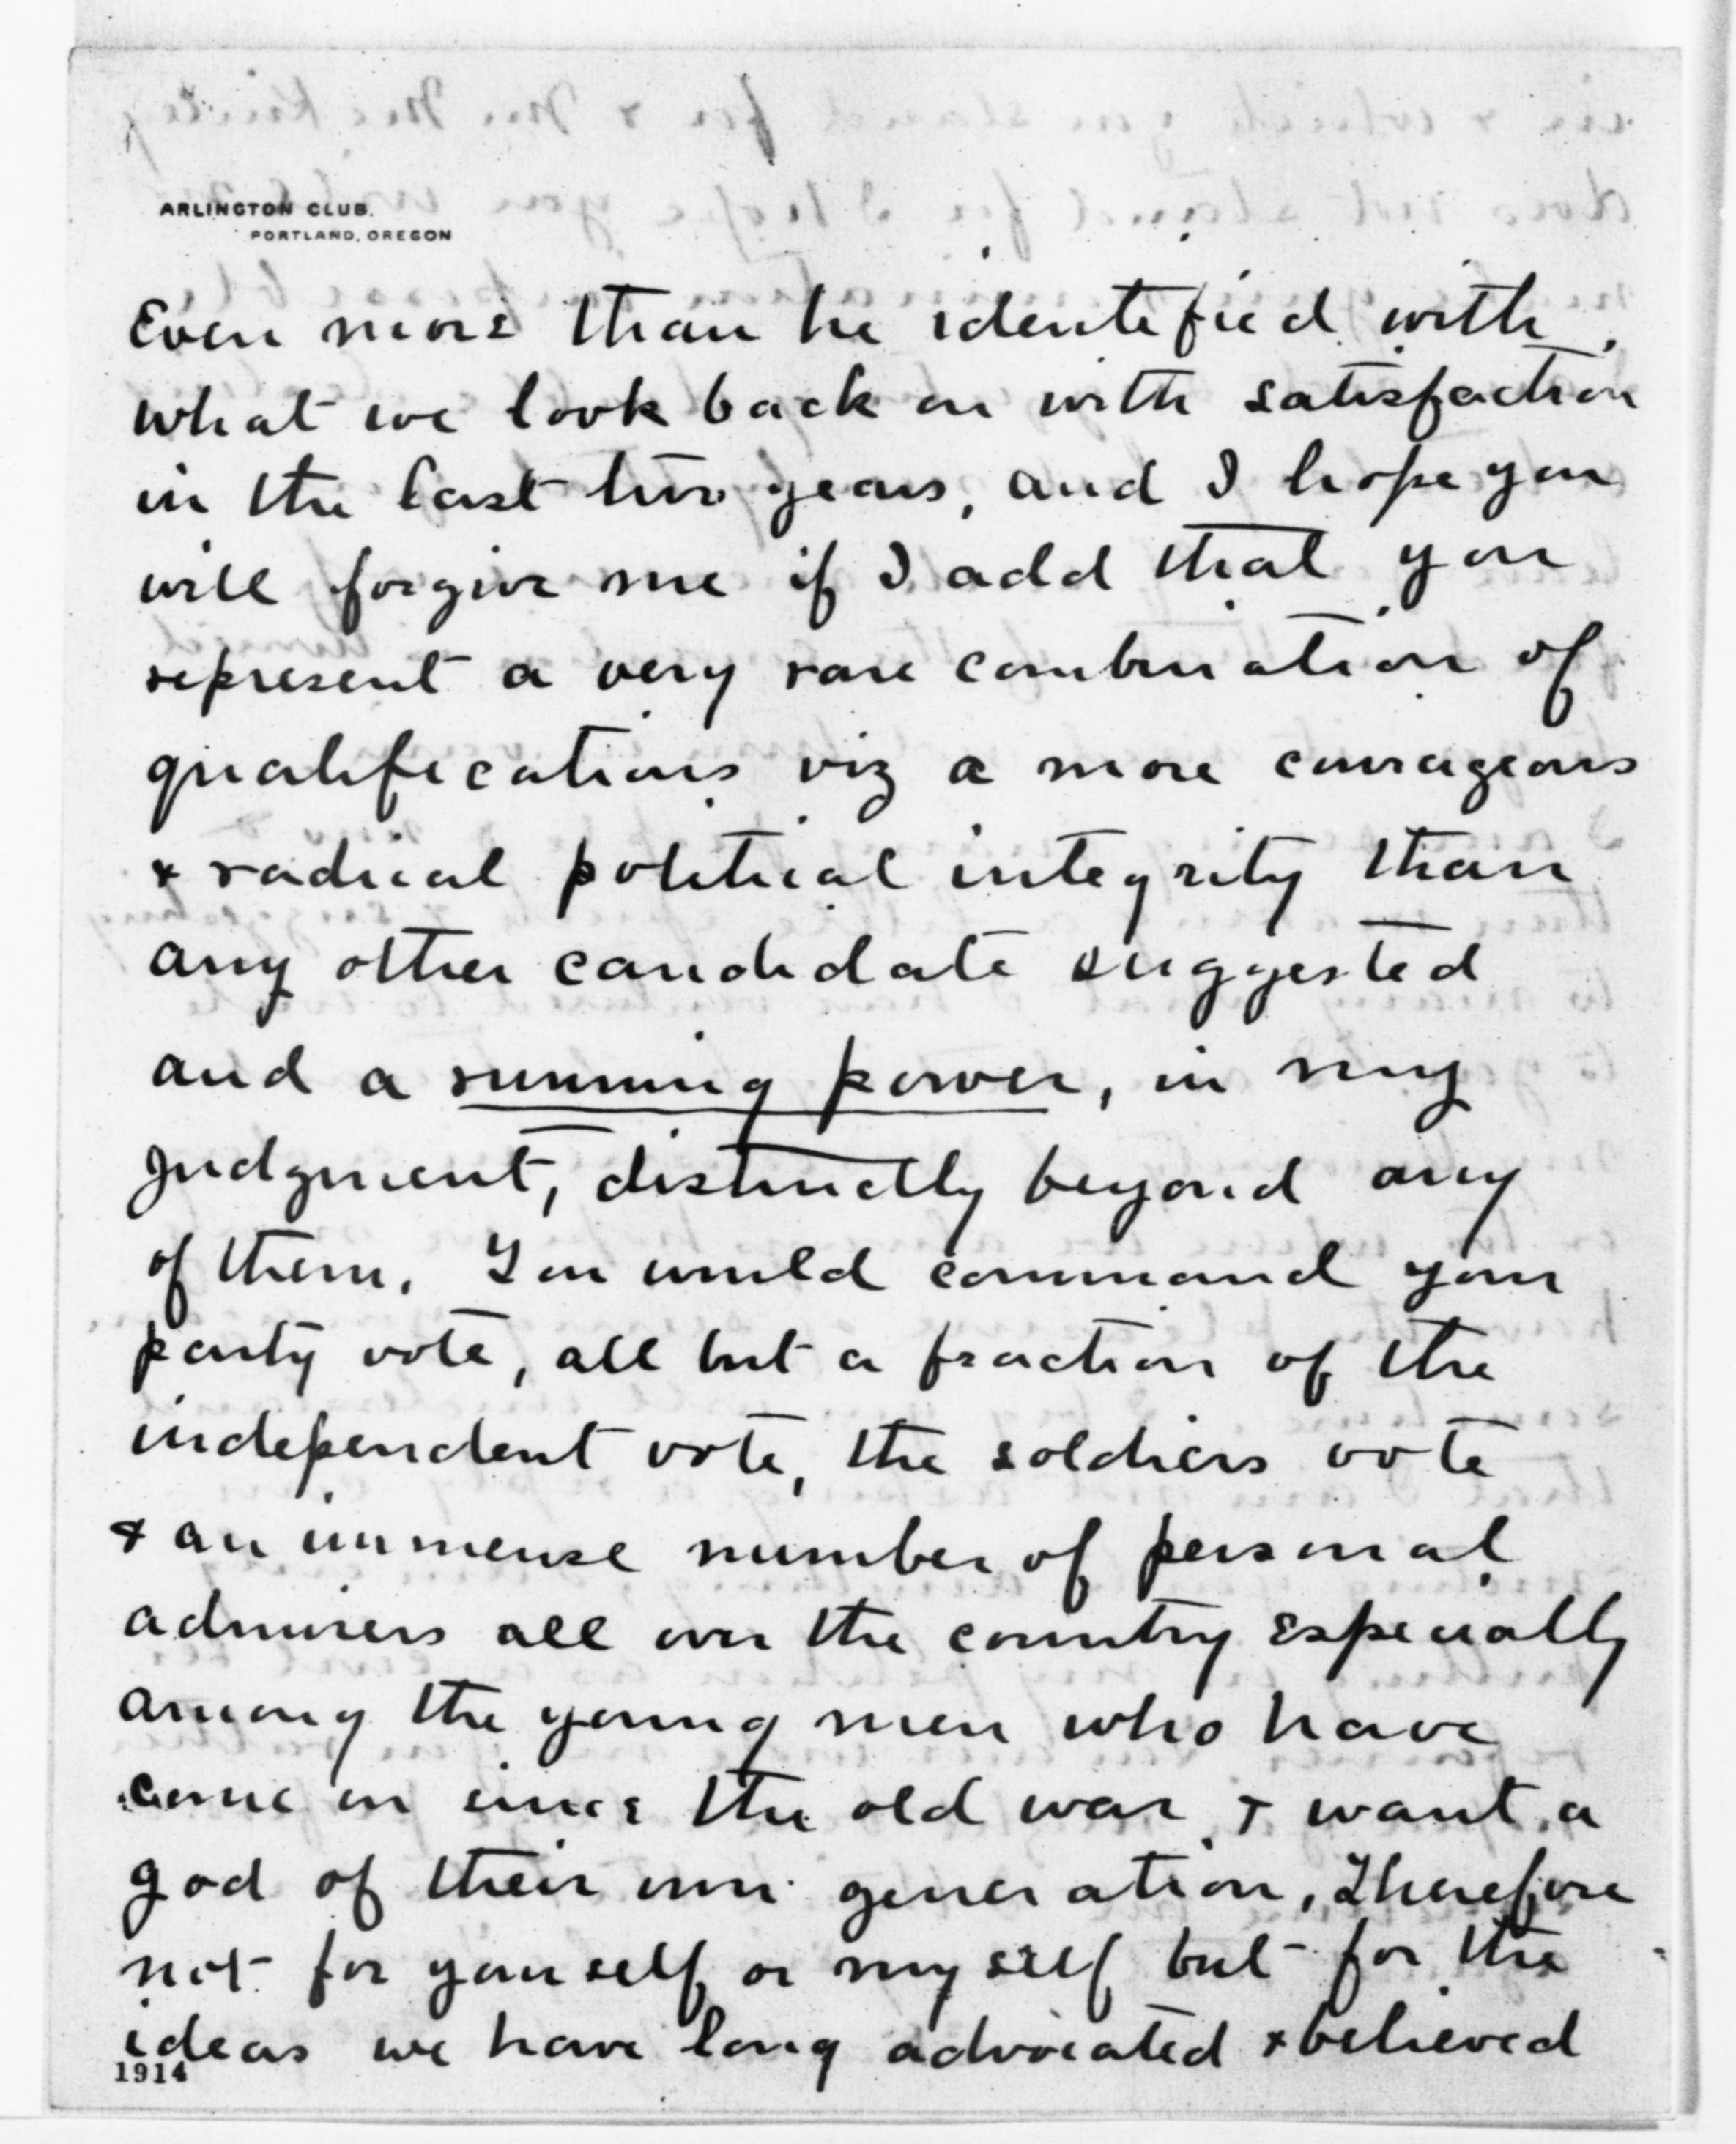 ARLINGTON CLUB.
PORTLAND, OREGON
Even more than he identified with
what we look back on with satisfaction
in the last two years, and I hope you
will forgive me if I add that you
represent a very rare combination of
qualifications viz a more courageous
& radical political integrity than
any other candidate suggested
and a running power, in my
judgment, distinctly beyond any
of them. You would command your
party vote, all but a fraction of the
independent vote, the soldiers vote
& an immense number of personal
admirers all over the country especially
among the young men who have
come on since the old war & want a
god of their own generation, Therefore
not for yourself or myself but for the
ideas we have long advocated & believed
1914